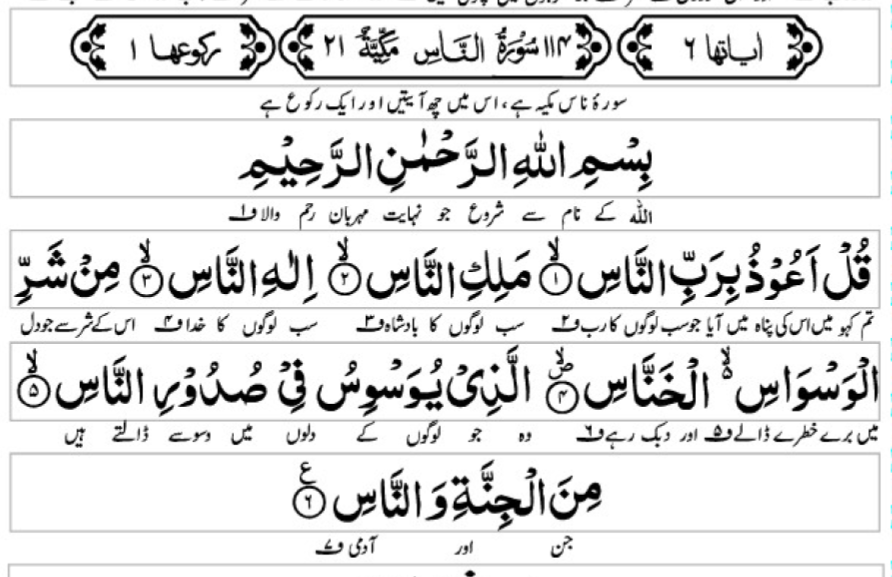 اٰیاتها ٦ ١١٤ سُوْرَةُ النَّاسِ مَكِّیَّةٌ ٢١ ركوعها ١
سورۂ ناس مکیہ ہے، اس میں چھ آیتیں اور ایک رکوع ہے
بِسْمِ اللهِ الرَّحْمٰنِ الرَّحِیْمِ
اللہ کے نام سے شروع جو نہایت مہربان رحم والا ف۱
قُلْ اَعُوْذُ بِرَبِّ النَّاسِ ۙ﴿۱﴾ مَلِكِ النَّاسِ ۙ﴿۲﴾ اِلٰهِ النَّاسِ ۙ﴿۳﴾ مِنْ شَرِّ
تم کہو میں اس کی پناہ میں آیا جو سب لوگوں کا رب ف۲ سب لوگوں کا بادشاہ ف۳ سب لوگوں کا خدا ف۴ اس کے شر سے جو دل
الْوَسْوَاسِ ۙ۬ الْخَنَّاسِ ۪ۙ﴿۴﴾ الَّذِیْ یُوَسْوِسُ فِیْ صُدُوْرِ النَّاسِ ۙ﴿۵﴾
میں برے خطرے ڈالے ف۵ اور دبک رہے ف۶ وہ جو لوگوں کے دلوں میں وسوسے ڈالتے ہیں
مِنَ الْجِنَّةِ وَ النَّاسِ ﴿۶﴾ ع
جن اور آدمی ف۷